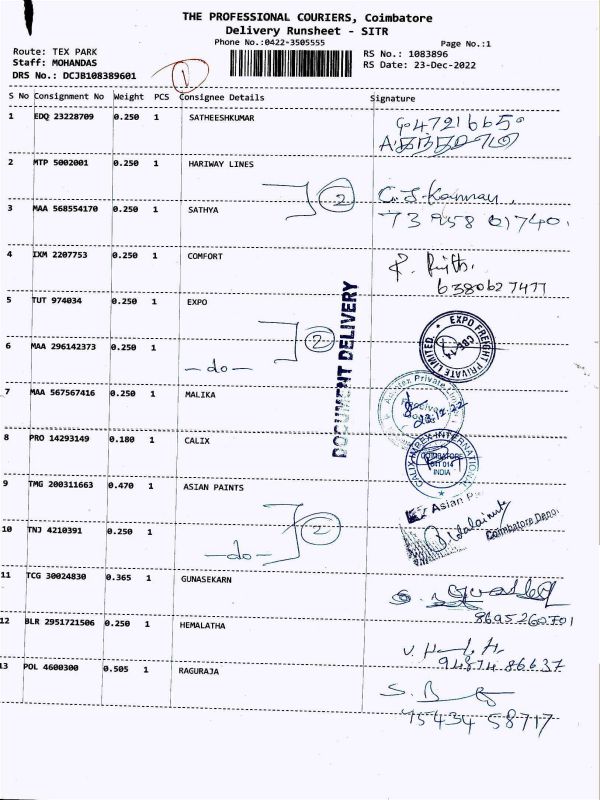 THE PROFESSIONAL COURIERS, Coimbatore
Delivery Runsheet - SITR
Phone No.:0422-3505555
Page No.:1
Route: TEX PARK
Staff: MOHANDAS
DRS No.: DCJB108389601
RS No.: 1083896
RS Date: 23-Dec-2022
1
S No Consignment No Weight PCS Consignee Details Signature
1 EDQ 23228709 0.250 1 SATHEESHKUMAR
2 MTP 5002001 0.250 1 HARIWAY LINES
2
3 MAA 568554170 0.250 1 SATHYA
73958 01740.
4 IXM 2207753 0.250 1 COMFORT
6380627477
5 TUT 974034 0.250 1 EXPO
2
EXPO FREIGHT PRIVATE LIMITED
CBE-14
6 MAA 296142373 0.250 1 -do-
DOCUMENT DELIVERY
7 MAA 567567416 0.250 1 MALIKA
Private
8 PRO 14293149 0.180 1 CALIX
CALIX IMPEX INTERNATIONAL
COIMBATORE
641 014
INDIA
9 TMG 200311663 0.470 1 ASIAN PAINTS
2
Asian
Coimbatore Depot
10 TNJ 4210391 0.250 1 -do-
11 TCG 30024830 0.365 1 GUNASEKARN
8695260701
12 BLR 2951721506 0.250 1 HEMALATHA
94874 86637
13 POL 4600300 0.505 1 RAGURAJA
75434 58717